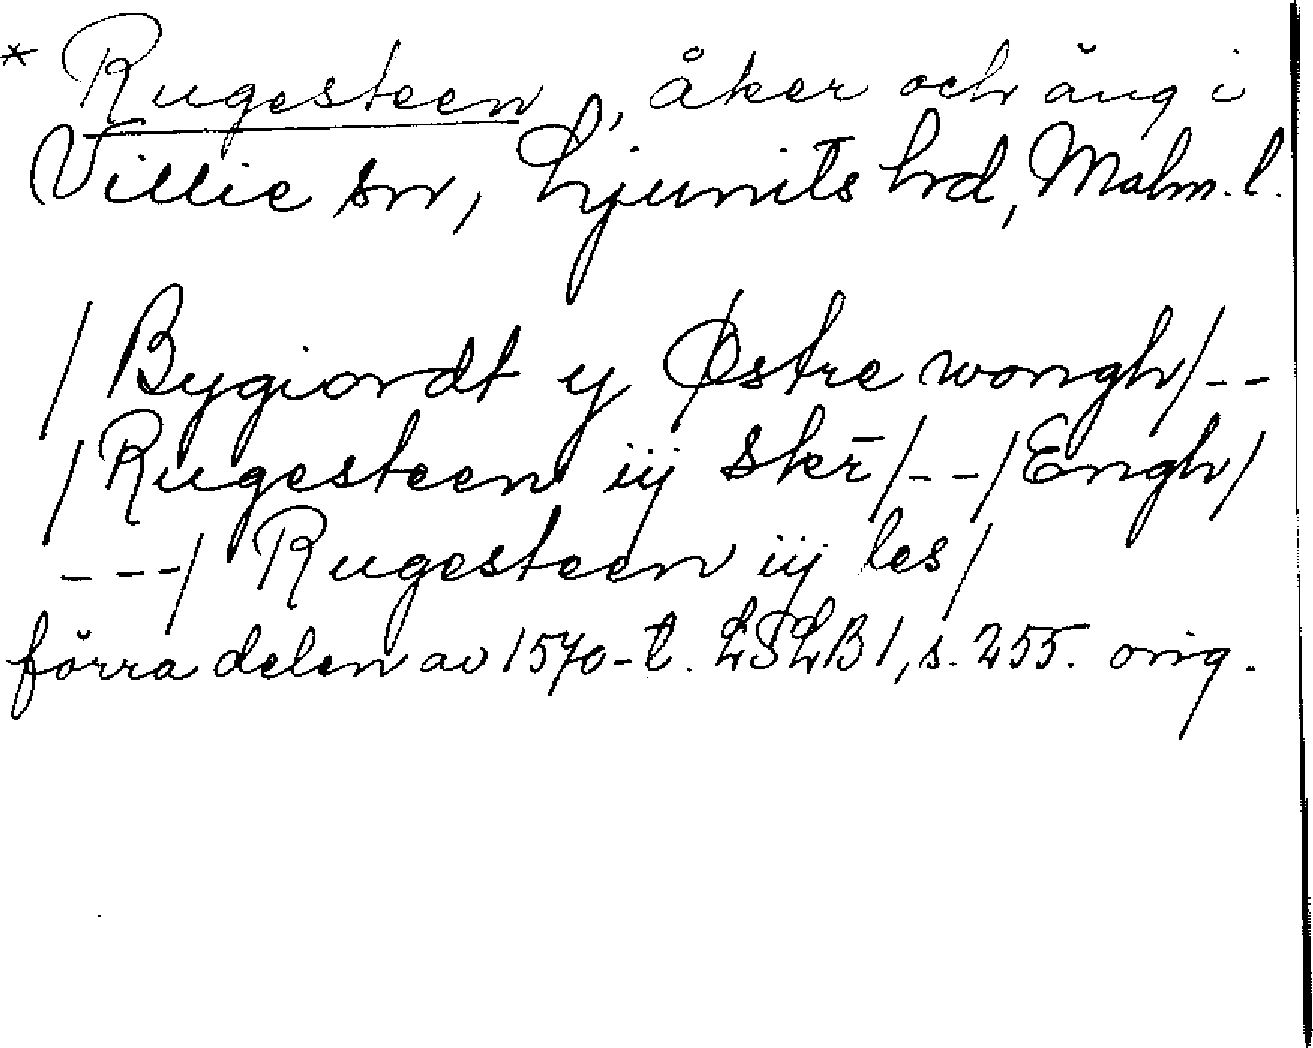 * Rugesteen, åker och äng i
Villie sn, Ljunits hrd, Malm. l.
/ Bygiordt y Østre wongh/--
/ Rugesteen iij skr̄/--/Engh/
---/ Rugesteen iij les/
förra delen av 1570-t. LSLB1, s. 255. orig.